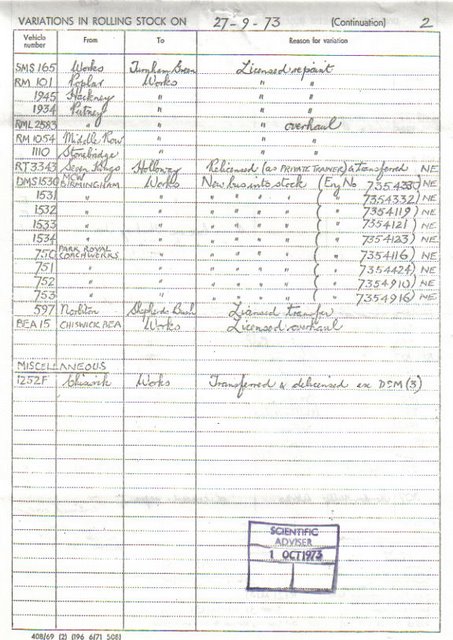 VARIATIONS IN ROLLING STOCK ON 27-9-73 (Continuation) 2
Vehicle number From To Reason for variation
SMS 165 Works Turnham Green Licensed repaint
RM 101 Poplar Works " "
1945 Hackney " " "
1934 Putney " " "
RML 2583 " " " overhaul
RM 1054 Middle Row " " "
1110 Stonebridge " " "
RT3343 Seven Kings Holloway Relicensed (as PRIVATE TRAINER) & transferred NE
DMS1530 MCW BIRMINGHAM Works New bus into stock (Eng No 7354330) NE
1531 " " " " " " ( " 7354332) NE
1532 " " " " " " ( " 7354119) NE
1533 " " " " " " ( " 7354121) NE
1534 " " " " " " ( " 7354123) NE
750 PARK ROYAL COACHWORKS " " " " " ( " 7354116) NE
751 " " " " " " ( " 7354424) NE
752 " " " " " " ( " 7354910) NE
753 " " " " " " ( " 7354916) NE
597 Norbiton Shepherds Bush Licensed transfer
BEA 15 CHISWICK BEA Works Licensed overhaul
MISCELLANEOUS
1252F Chiswick Works Transferred & delicensed ex DSM (3)
SCIENTIFIC
ADVISER
1 OCT 1973
408/69 (2) (196 6/71 508)